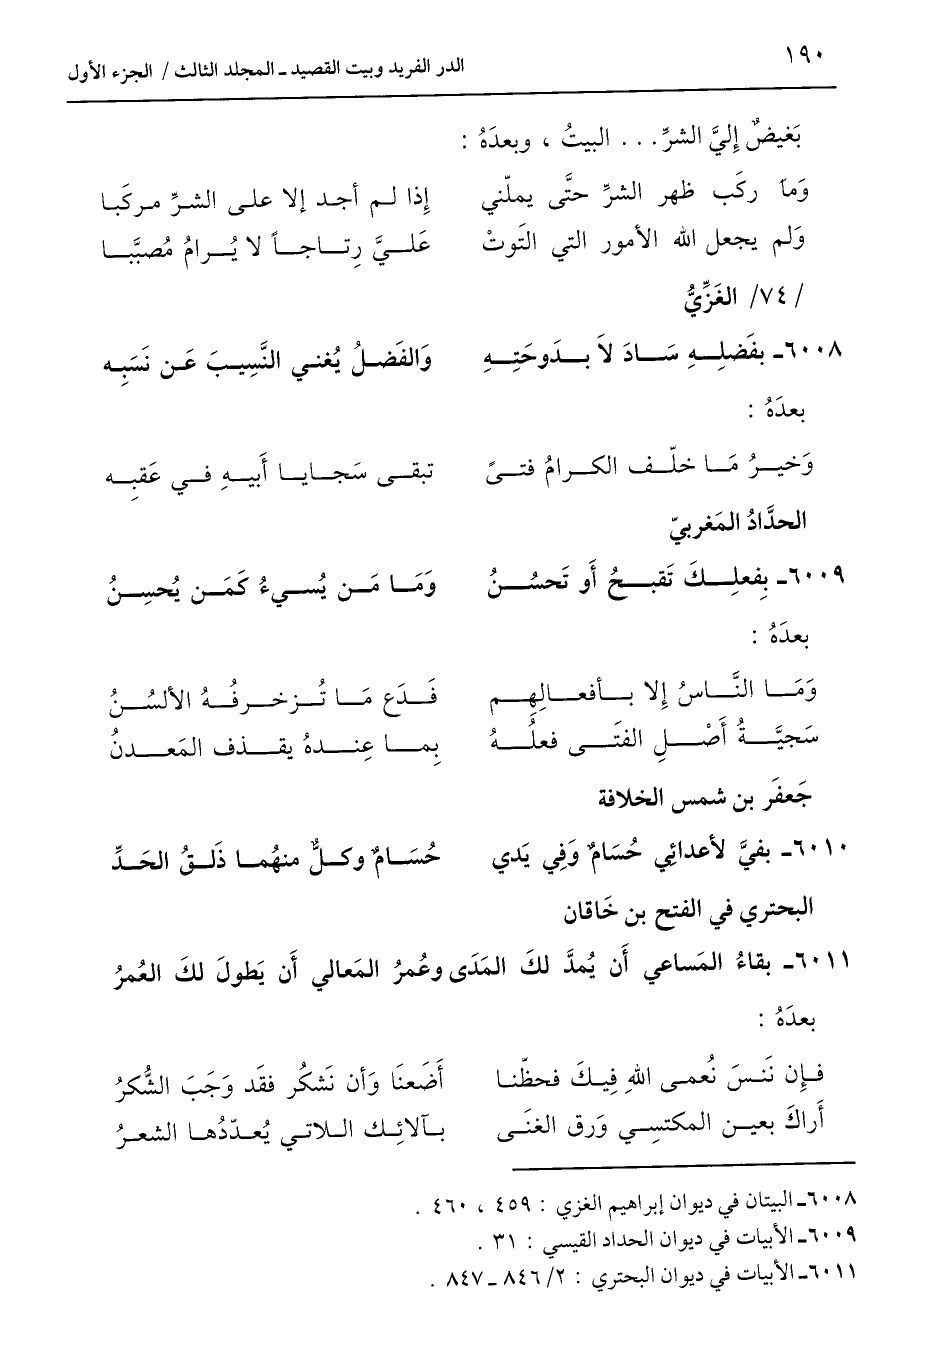 ١٩٠
الدر الفريد وبيت القصيد ـ المجلد الثالث / الجزء الأول
بَغيضٌ إِليَّ الشرِّ . . . البيتُ ، وبعدَهُ :
وَمَا ركَب ظهر الشرِّ حتَّى يملّني إِذا لم أجد إلا على الشرِّ مركَبا
وَلم يجعل الله الأمور التي التَوتْ عَليَّ رِتاجاً لا يُرامُ مُصبَّبا
/ ٧٤/ الغَزِّيُّ
٦٠٠٨ـ بفَضلِهِ سَادَ لاَ بدَوحَتِهِ وَالفَضلُ يُغني النَّسِيبَ عَن نَسَبِه
بعدَهُ :
وَخيرُ مَا خلّف الكرامُ فتىً تبقى سَجايا أَبيهِ في عَقبِه
الحدَّادُ المَغربيّ
٦٠٠٩ـ بِفعلِكَ تَقبحُ أو تَحسُنُ وَمَا مَن يُسيءُ كَمَن يُحسِنُ
بعدَهُ :
وَمَا النَّاسُ إِلا بأفعالِهِم فَدَع مَا تُزخرفُهُ الألسُنُ
سَجيَّةُ أَصْلِ الفتَى فعلُهُ بما عِندهُ يقذف المَعدنُ
جَعفَر بن شمس الخلافة
٦٠١٠ـ بفيَّ لأعدائِي حُسَامٌ وَفِي يَدي حُسَامٌ وكلٌّ منهُما ذَلقُ الحَدِّ
البحتري في الفتح بن خَاقان
٦٠١١ـ بقاءُ المَساعي أَن يُمدَّ لكَ المَدَى وعُمرُ المَعالي أَن يَطولَ لكَ العُمرُ
بعدَهُ :
فإِن نَنسَ نُعمى اللهِ فِيكَ فحظّنا أَضَعنَا وَأن نَشكُر فقَد وَجَبَ الشُّكرُ
أَراكَ بعين المكتسِي وَرق الغنَى بآلائِك اللاتي يُعدّدُها الشعرُ
٦٠٠٨ـ البيتان في ديوان إبراهيم الغزي : ٤٥٩ ، ٤٦٠ .
٦٠٠٩ـ الأبيات في ديوان الحداد القيسي : ٣١ .
٦٠١١ـ الأبيات في ديوان البحتري : ٢/ ٨٤٦ ـ ٨٤٧ .